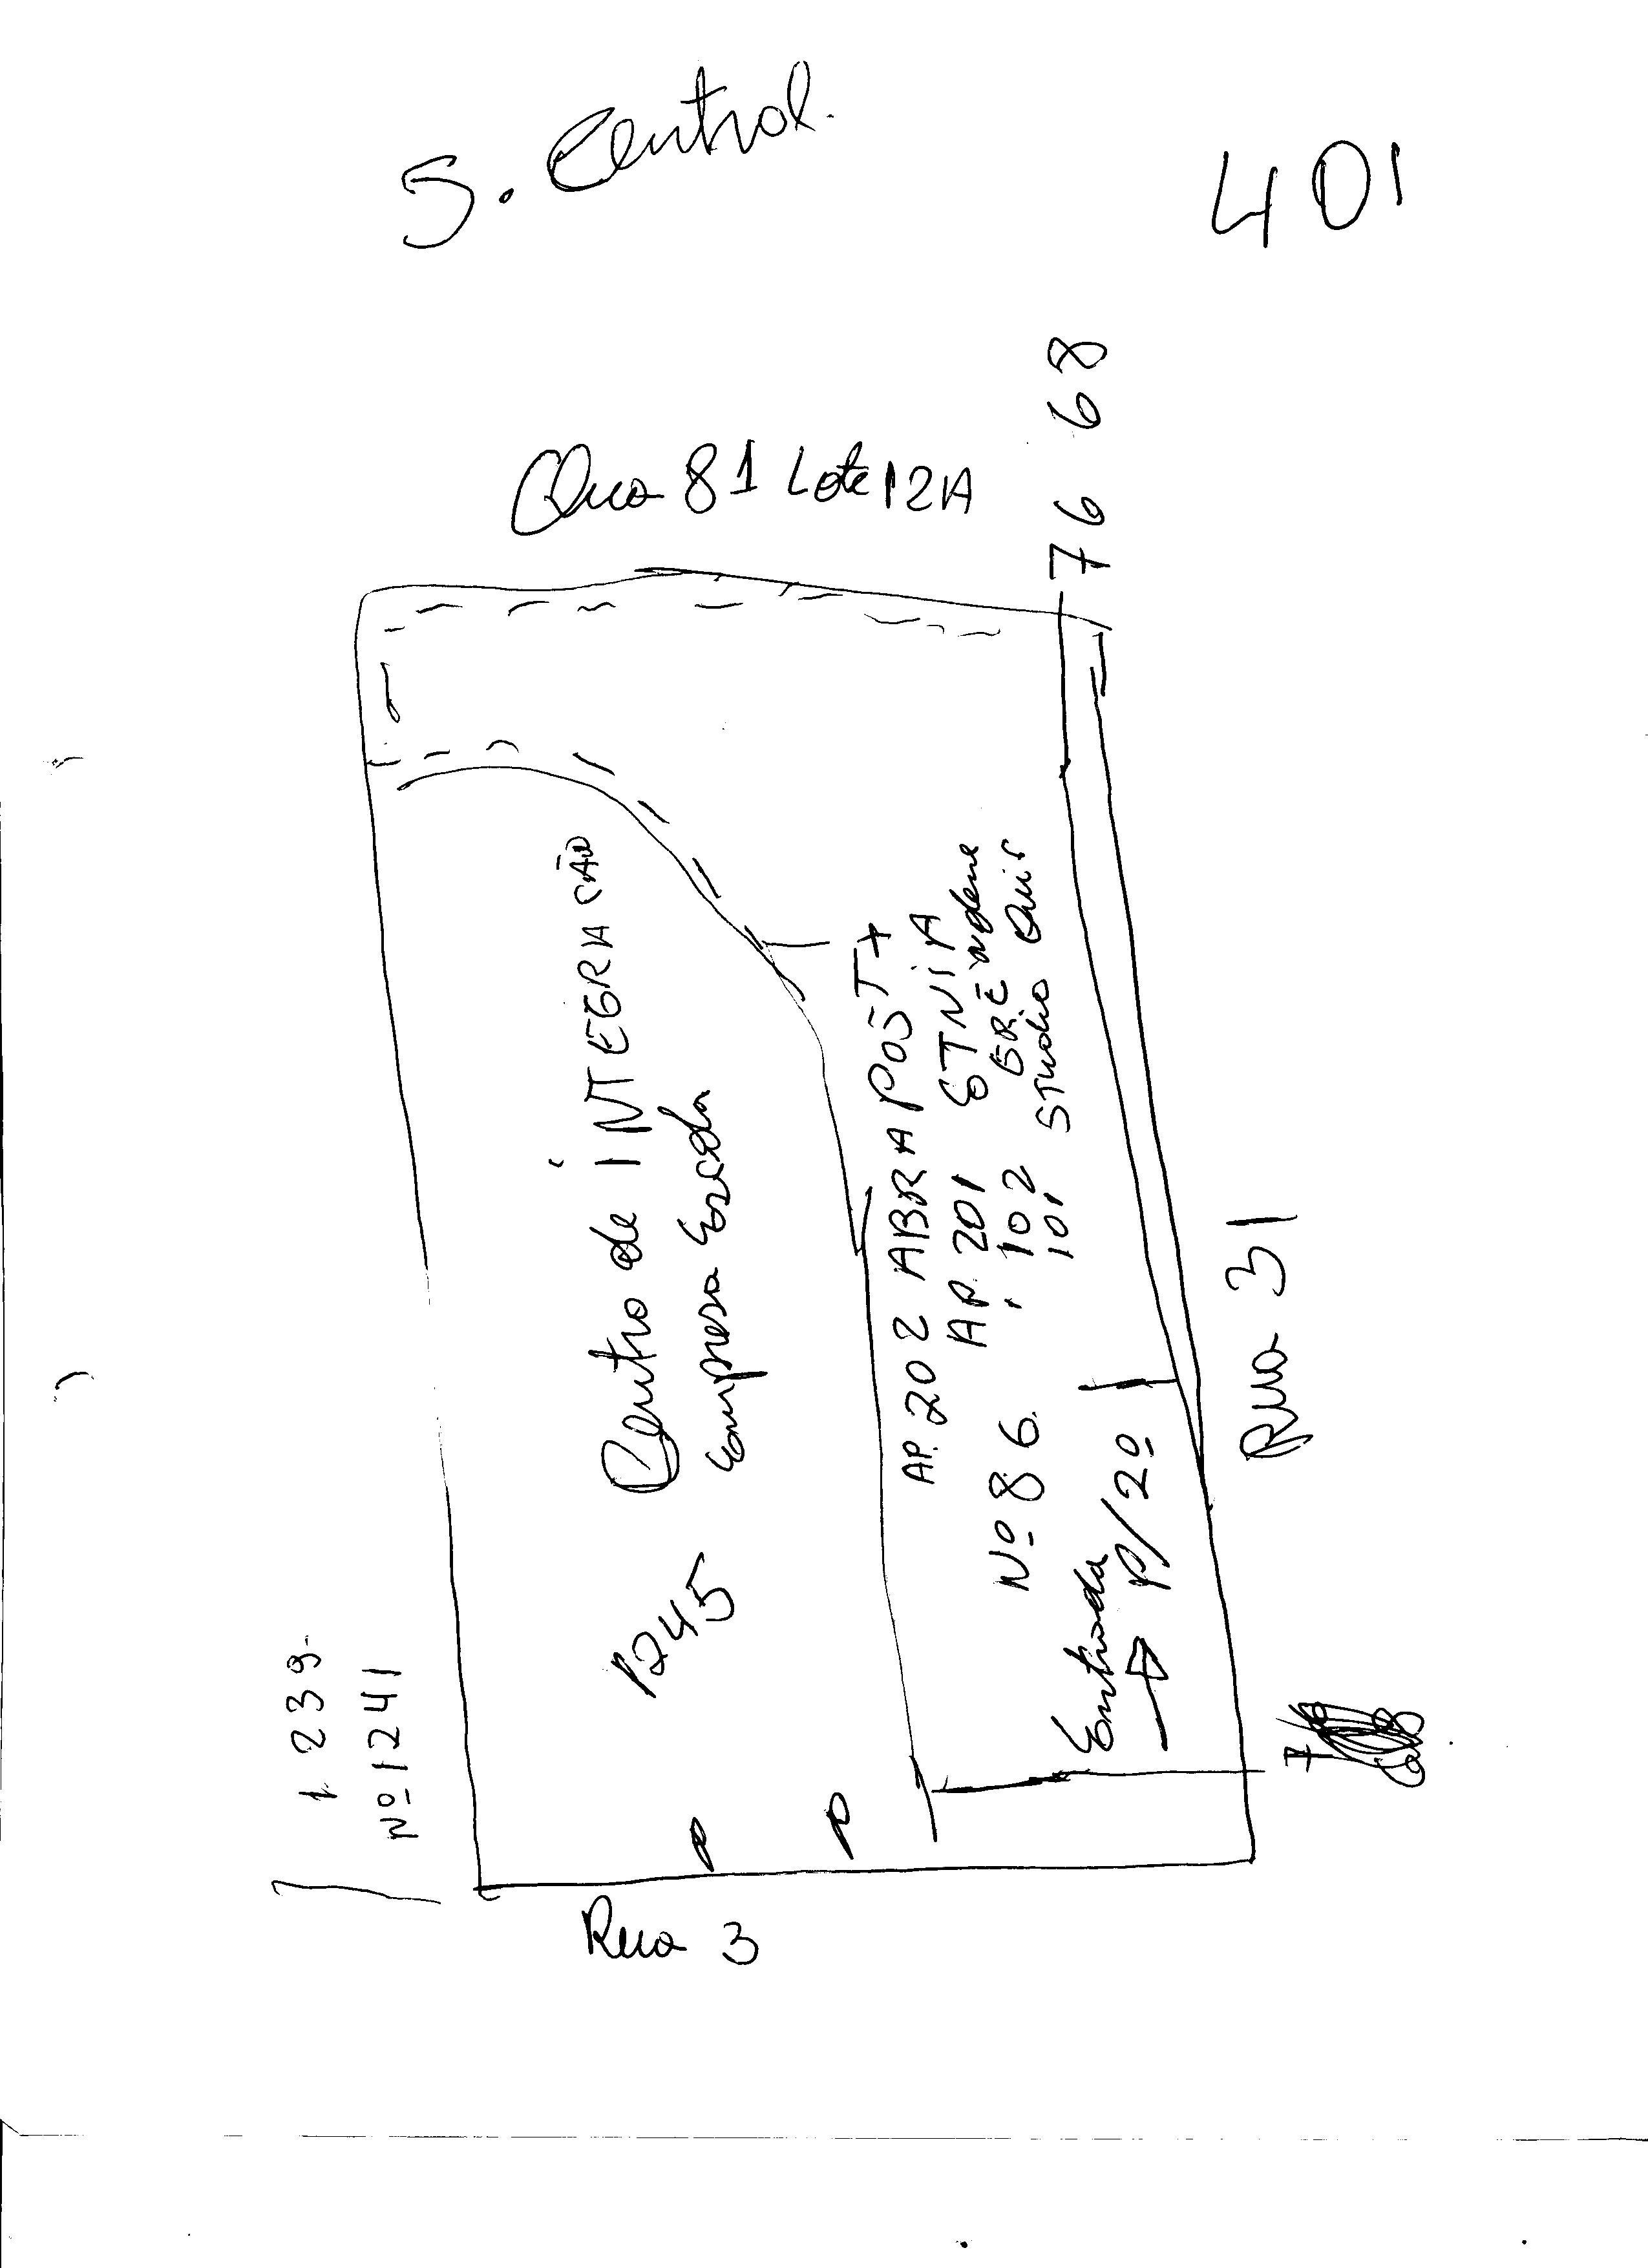 S. Central.
401
Qua 81 Lote 12A
76 68
1239
Nº 1241
Centro de INTEGRAÇÃO
Empresa Escola
1245
AP. 202 ABRAPOST
AP. 201 ETNIA
102
101 STudio
Nº 86
Entrada
P/2º
Rua 31
Rua 3